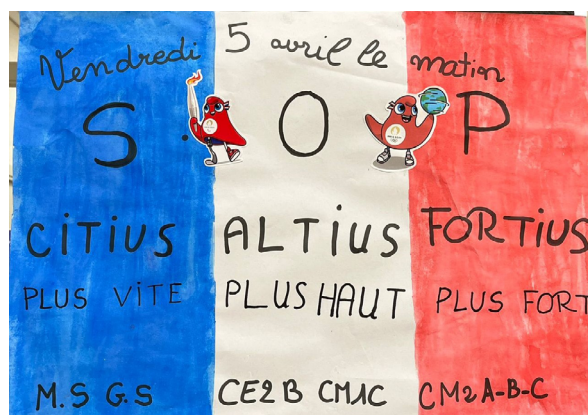 Vendredi 5 avril le matin
S. O P
CITIUS ALTIUS FORTIUS
PLUS VITE PLUS HAUT PLUS FORT
M.S G.S CE2 B CM1C CM2 A-B-C